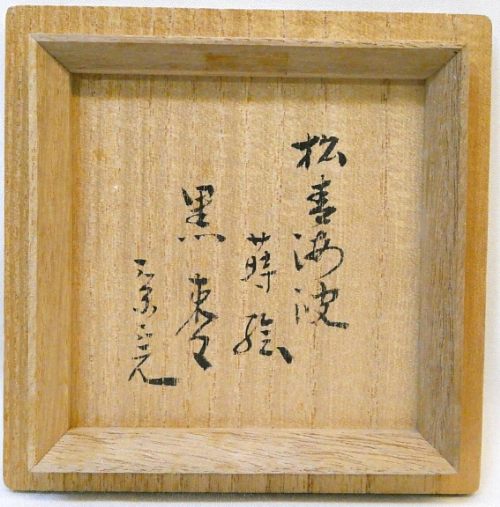 松青海波
蒔絵
黒棗